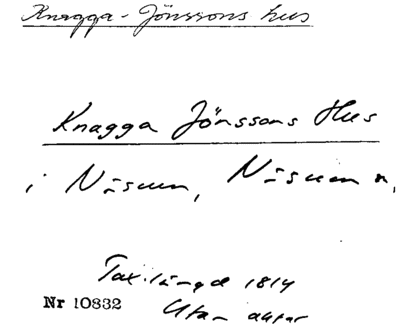 Knagga-Jönssons hus
Knagga Jönssons Hus
i Näsum, Näsum n,
Taxilängd 1814
Nr 10832 Utan antar